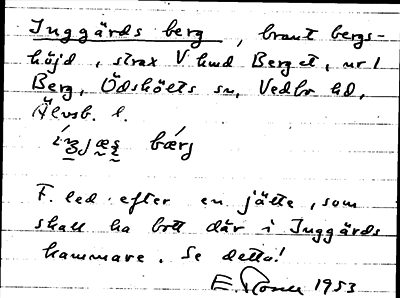 Inggärds berg, brant bergs-
höjd, strax V hmd Berget, nr 1
Berg, Ödskölts sn, Vedbo hd,
Älvsb. l.
bærj
F. led efter en jätte, som
skall ha bott där i Inggärds
kammare. Se detta!
E. 1953